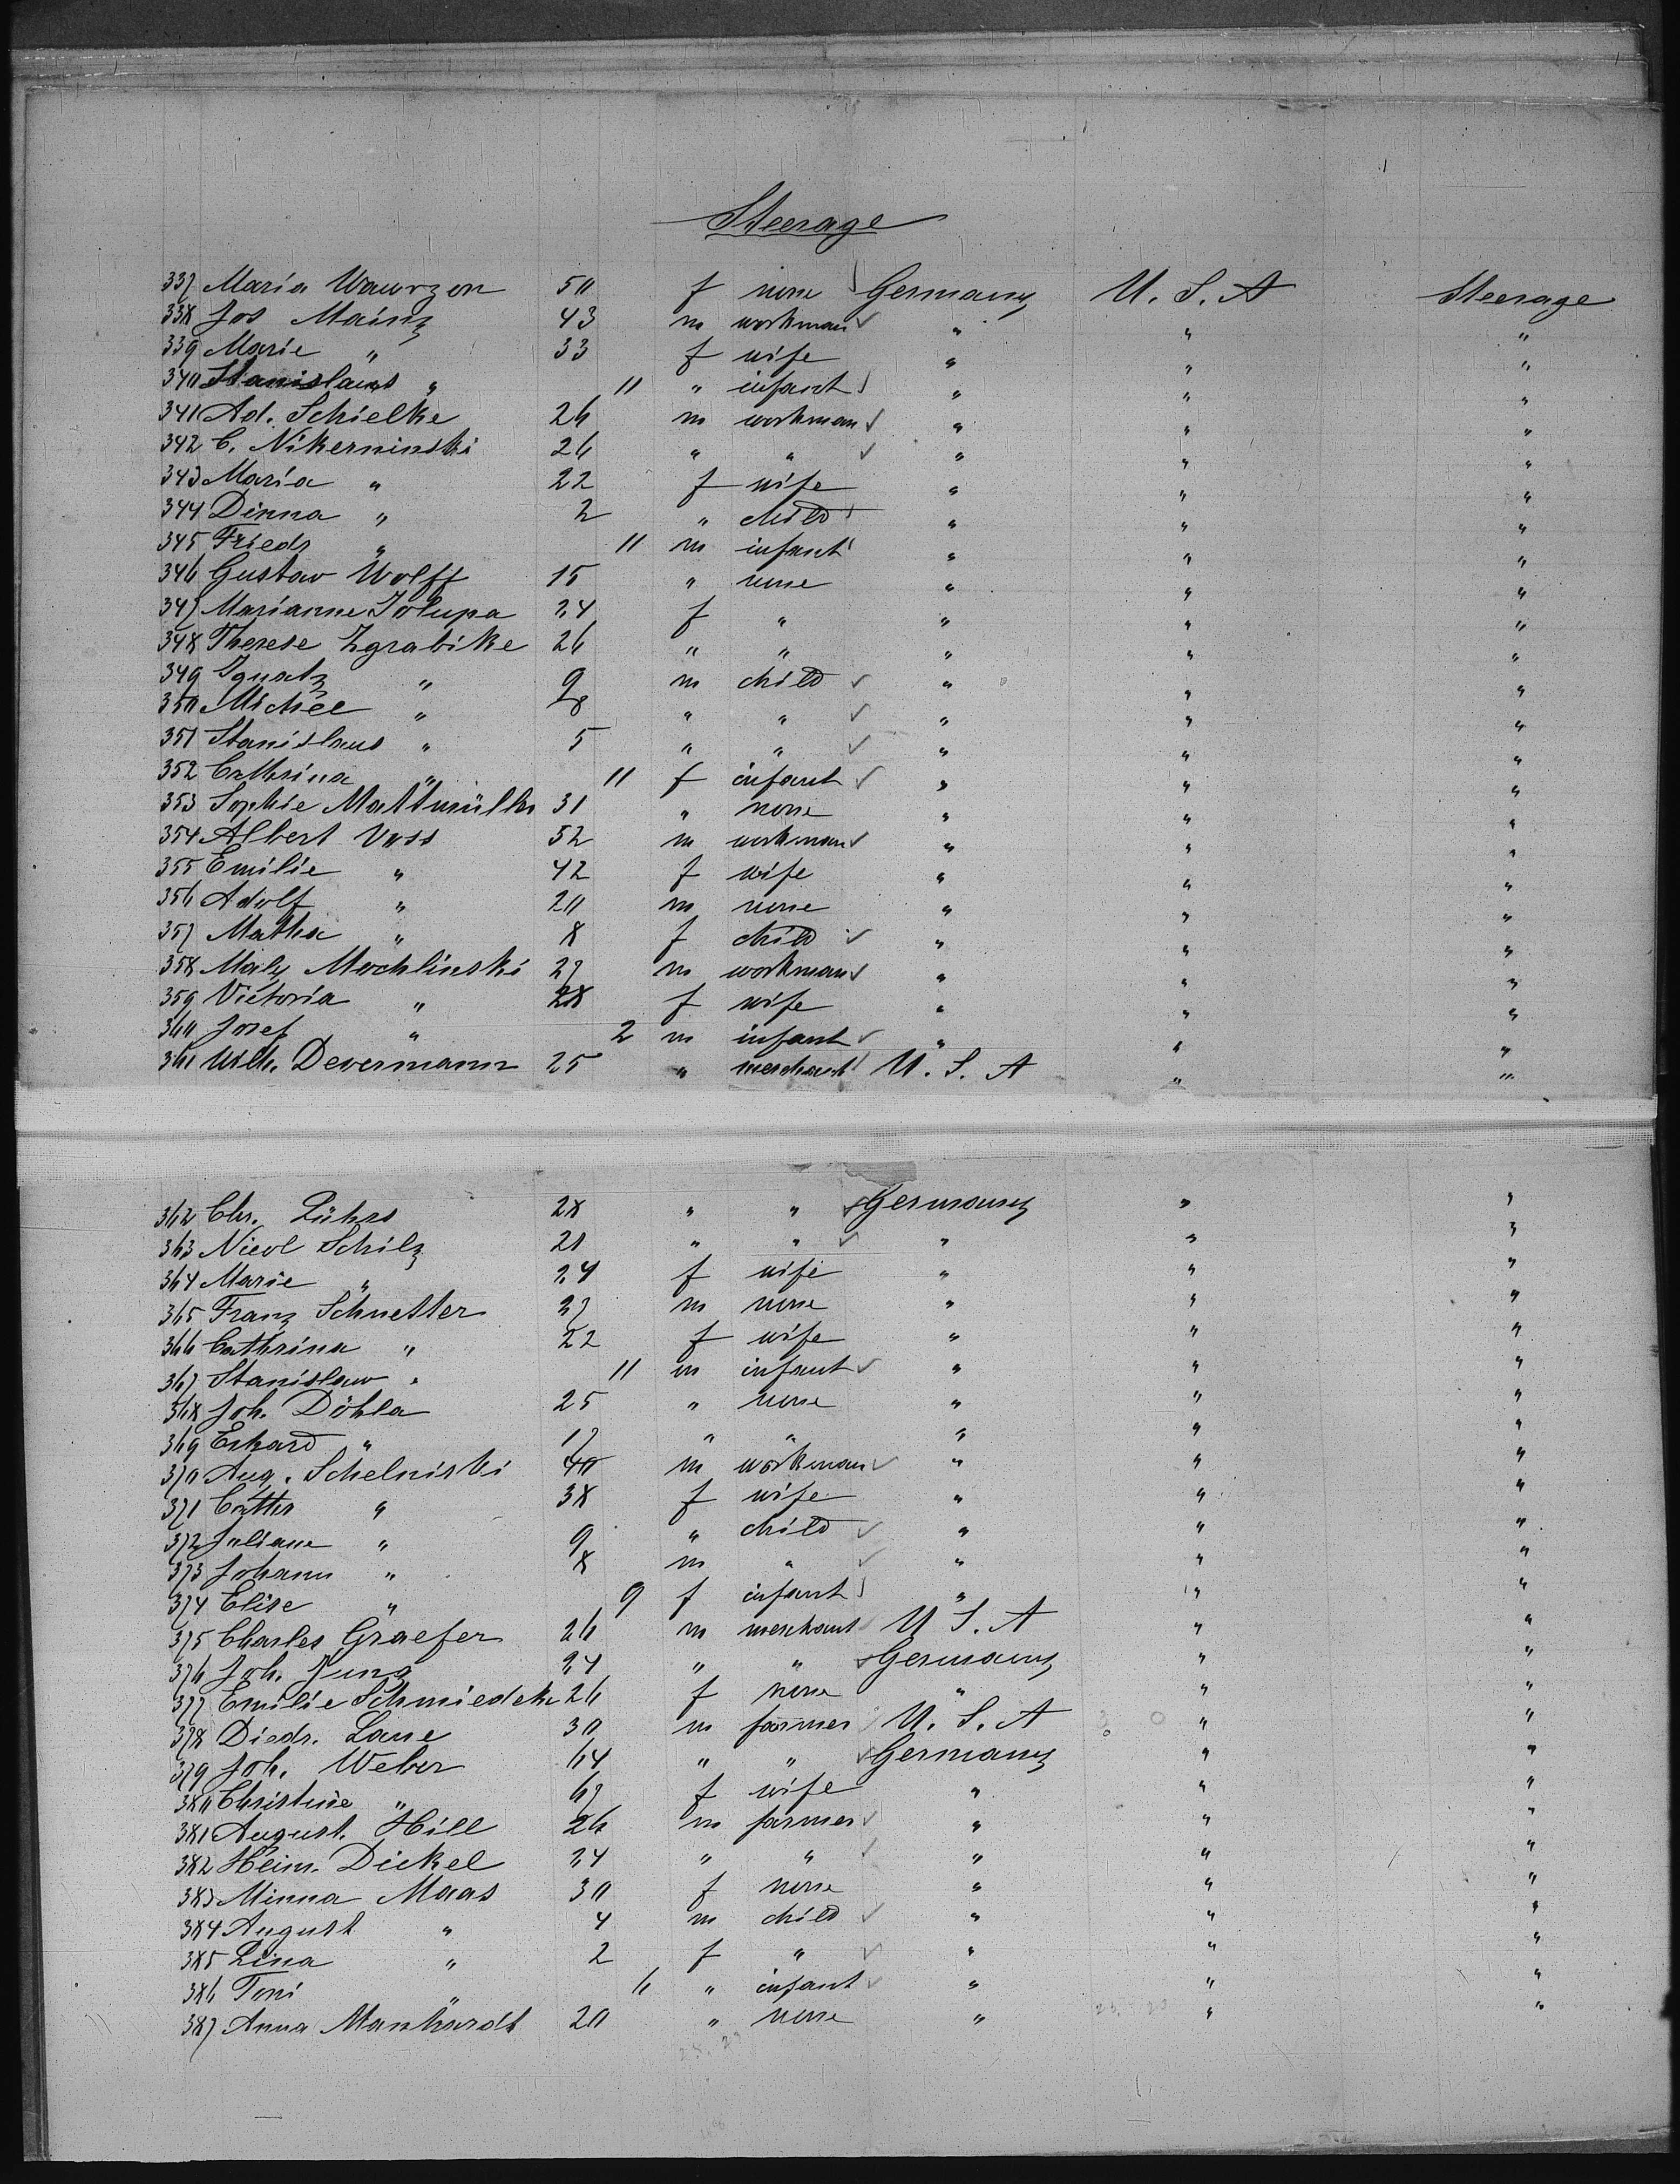 Steerage
337 Maria Wawrzon 50 f none Germany U. S. A Steerage
338 Jos Mainz 43 m workman " " "
339 Marie " 33 f wife " " "
340 Stanislaus " 11 " infant " " "
341 Ad. Schielke 26 m workman " " "
342 C. Nikerninski 26 " " " " "
343 Maria " 22 f wife " " "
344 Dinna " 2 " child " " "
345 Friedr " 11 m infant " " "
346 Gustav Wolff 15 " none " " "
347 Marianne Jolupa 24 f " " " "
348 Therese Zgrabike 26 " " " " "
349 Ignatz " 9 m child " " "
350 Michel " 8 " " " " "
351 Stanislaus " 5 " " " " "
352 Cathrina " 11 f infant " " "
353 Sophie Mattmüller 31 " none " " "
354 Albert Voss 52 m workman " " "
355 Emilie " 42 f wife " " "
356 Adolf " 20 m none " " "
357 Matha " 8 f child " " "
358 Maly Mochlinski 27 m workman " " "
359 Victoria " 28 f wife " " "
360 Josef " 2 m infant " " "
361 Wilh. Devermann 25 " merchant U. S. A " "
362 Chr. Lührs 28 " " Germany " "
363 Nicol Schilz 21 " " " " "
364 Marie " 24 f wife " " "
365 Franz Schnetter 27 m none " " "
366 Cathrina " 22 f wife " " "
367 Stanislaw " 11 m infant " " "
368 Joh. Döhla 25 " none " " "
369 Erhard " 17 " " " " "
370 Aug. Schelniski 40 m workman " " "
371 Cathr " 38 f wife " " "
372 Juliane " 9 " child " " "
373 Johann " 8 m " " " "
374 Elise " 9 f infant " " "
375 Charles Graefer 26 m merchant U S. A " "
376 Joh. Jung 24 " " Germany " "
377 Emilie Schmiedeke 26 f none " " "
378 Diedr. Laue 30 m farmer U. S. A " "
379 Joh. Weber 64 " " Germany " "
380 Christine " 67 f wife " " "
381 August. Hill 26 m farmer " " "
382 Heinr. Dickel 24 " " " " "
383 Minna Maas 30 f none " " "
384 August " 4 m child " " "
385 Lina " 2 f " " " "
386 Toni " 6 " infant " " "
387 Anna Manhardt 20 " none " " "